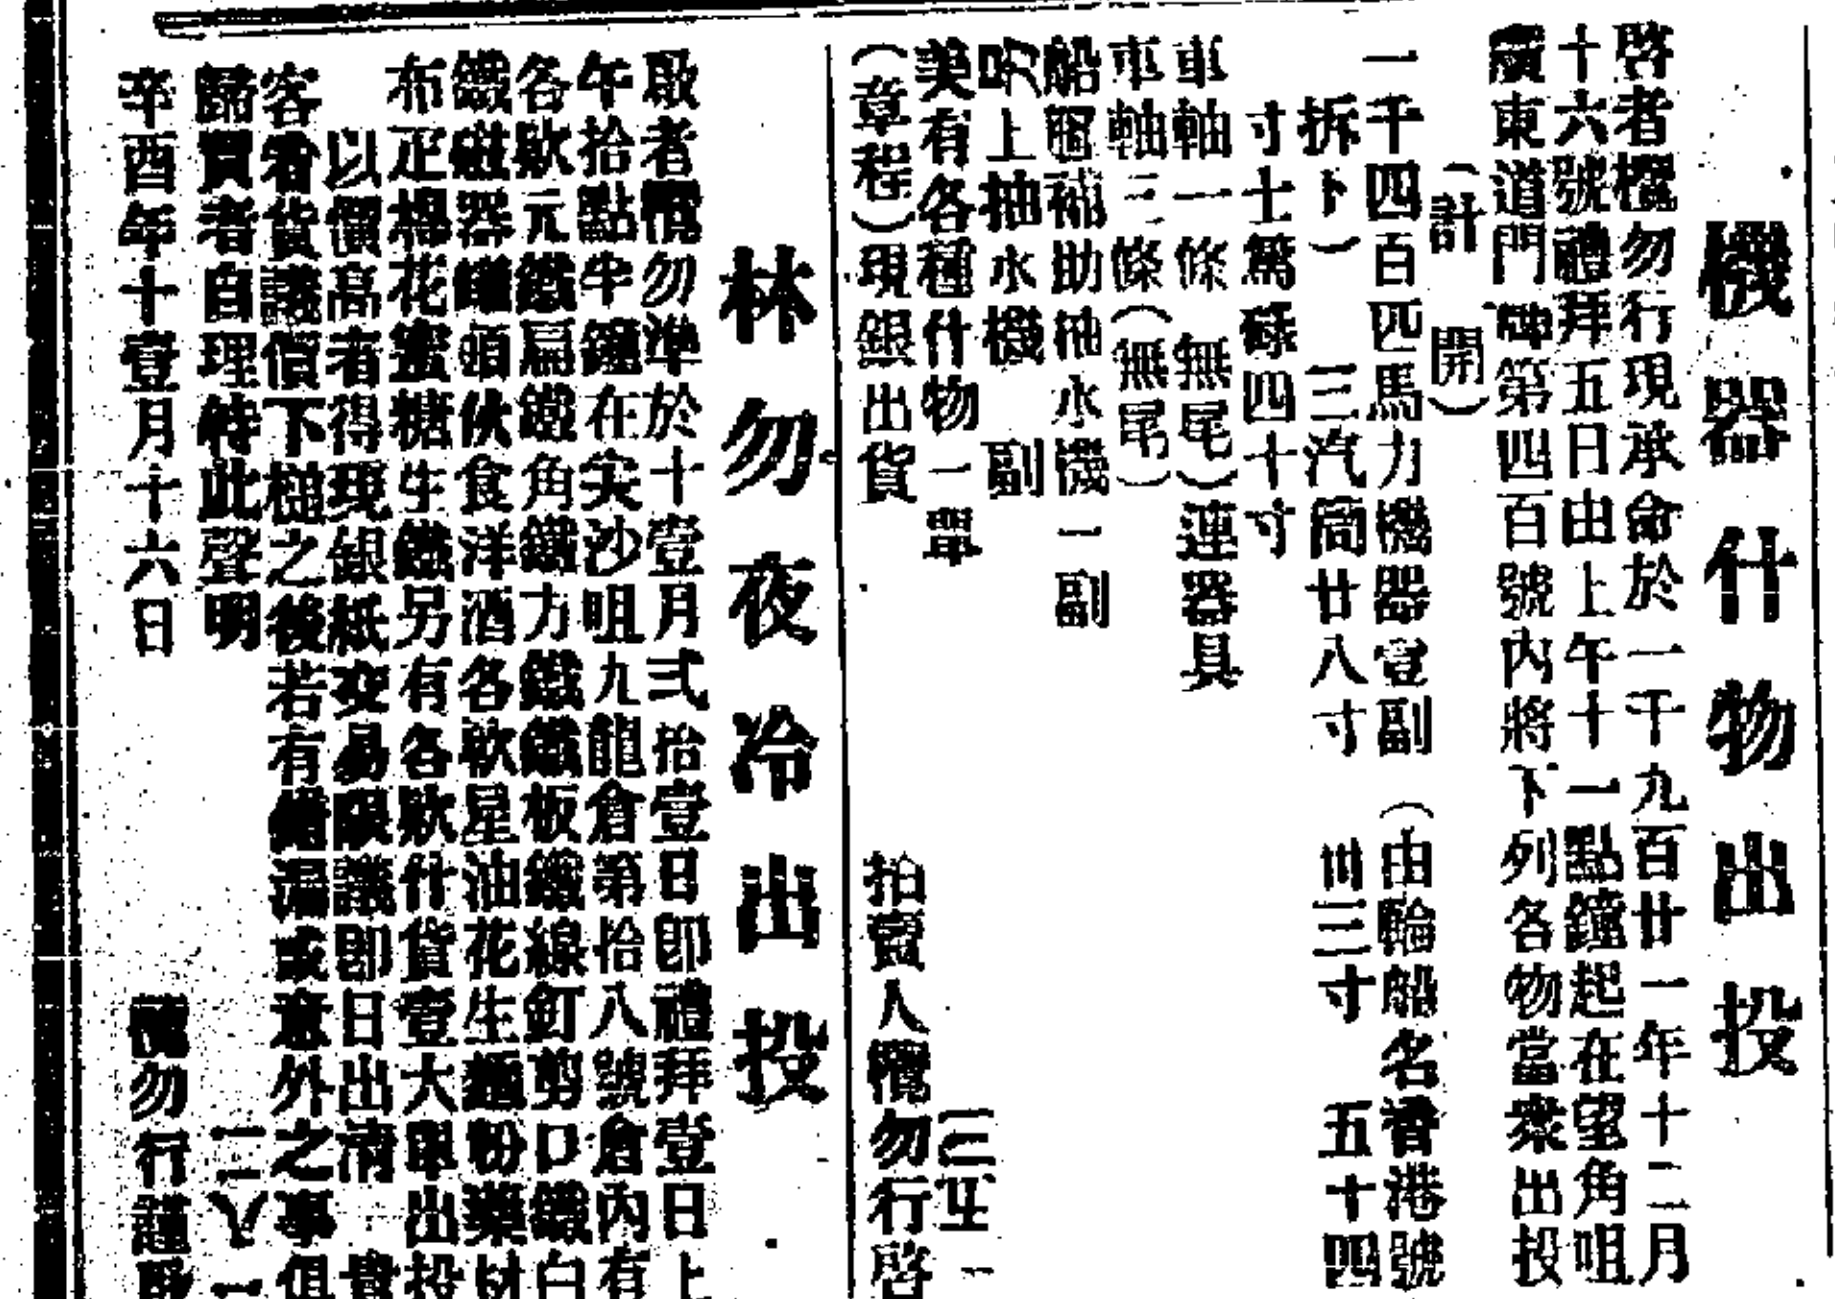 機器什物出投
啓者欖勿行現承命於一千九百廿一年十二月
十六號禮拜五日由上午十一點鐘起在望角咀
廣東道門牌第四百號內將下列各物當衆出投
(計開)
一千四百匹馬力機器壹副(由輪船名香港號
拆卜) 三汽筒廿八寸 卌三寸 五十四
寸士篤碌四十寸
車軸一條 無尾)連器具
車軸三條(無尾)
船 補助抽水機一副
另上抽水機 副
美有各種什物一單
(章程)現銀出貨
拍賣人欖勿行啓
林勿夜冷出投
啟者欖勿準於十壹月弍拾壹日卽禮拜壹日上
午拾點半鐘在尖沙咀九龍倉第拾八號倉內有
各欵元鐵扁鐵角鐵力鐵鐵板鐵線釘剪口鐵白
鐵磁器罐頭伙食洋酒各欵星油花生麵粉藥材
布疋棉花蜜糖生鐵另有各欵什貨壹大單出投
以價高者得現銀紙交易限議卽日出清 貴
客看貨議價下槌之後若有錯漏或意外之事俱
歸買者自理特此聲明
辛酉年十壹月十六日 欖勿行謹啟